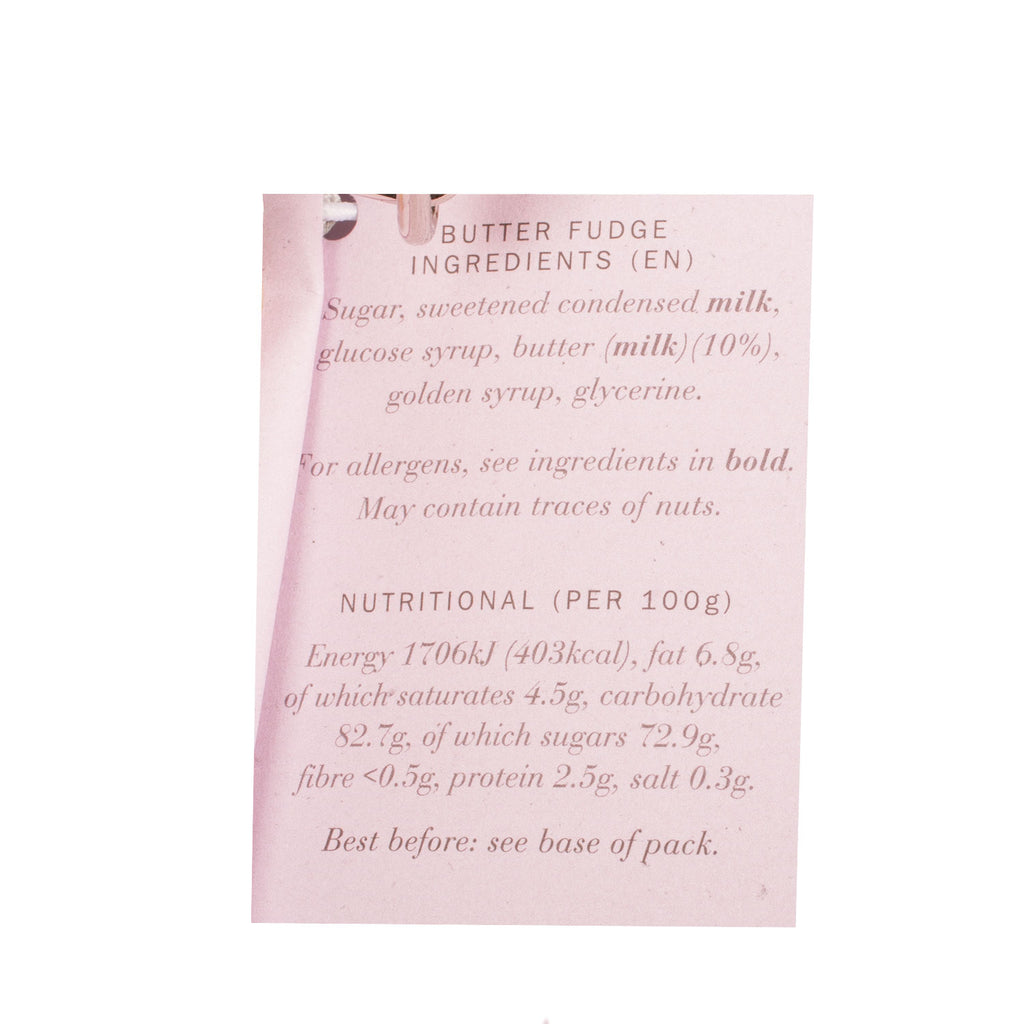 BUTTER FUDGE
INGREDIENTS (EN)
Sugar, sweetened condensed milk,
glucose syrup, butter (milk)(10%),
golden syrup, glycerine.
For allergens, see ingredients in bold.
May contain traces of nuts.
NUTRITIONAL (PER 100g)
Energy 1706kJ (403kcal), fat 6.8g,
of which saturates 4.5g, carbohydrate
82.7g, of which sugars 72.9g,
fibre <0.5g, protein 2.5g, salt 0.3g.
Best before: see base of pack.